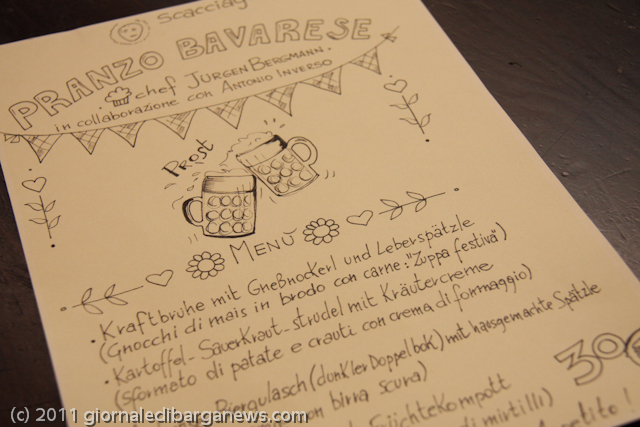 Scacciag
PRANZO BAVARESE
chef JÜRGEN BERGMANN.
in collaborazione con ANTONIO INVERSO
PROST
MENÙ
• Kraftbruhe mit Gneßnockerl und Leberspätzle
(Gnocchi di mais in brodo con carne: "Zuppa festiva")
• Kartoffel-Sauerkraut-strudel mit Kräutercreme
(sformeto di patate e crauti con crema di formaggio)
Biergulasch (dunkler Doppelbok) mit hausgemachte Spätzle
con birra scura)
30
di mirtilli)
Appetito!
(c) 2011 giornaledibarganews.com